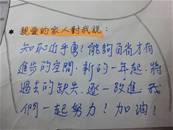 * 親愛的家人對我說:
知恥近乎勇!能夠自省才有
進步的空間,新的一年起,將
過去的缺失,逐一改進,我
們一起努力!加油!